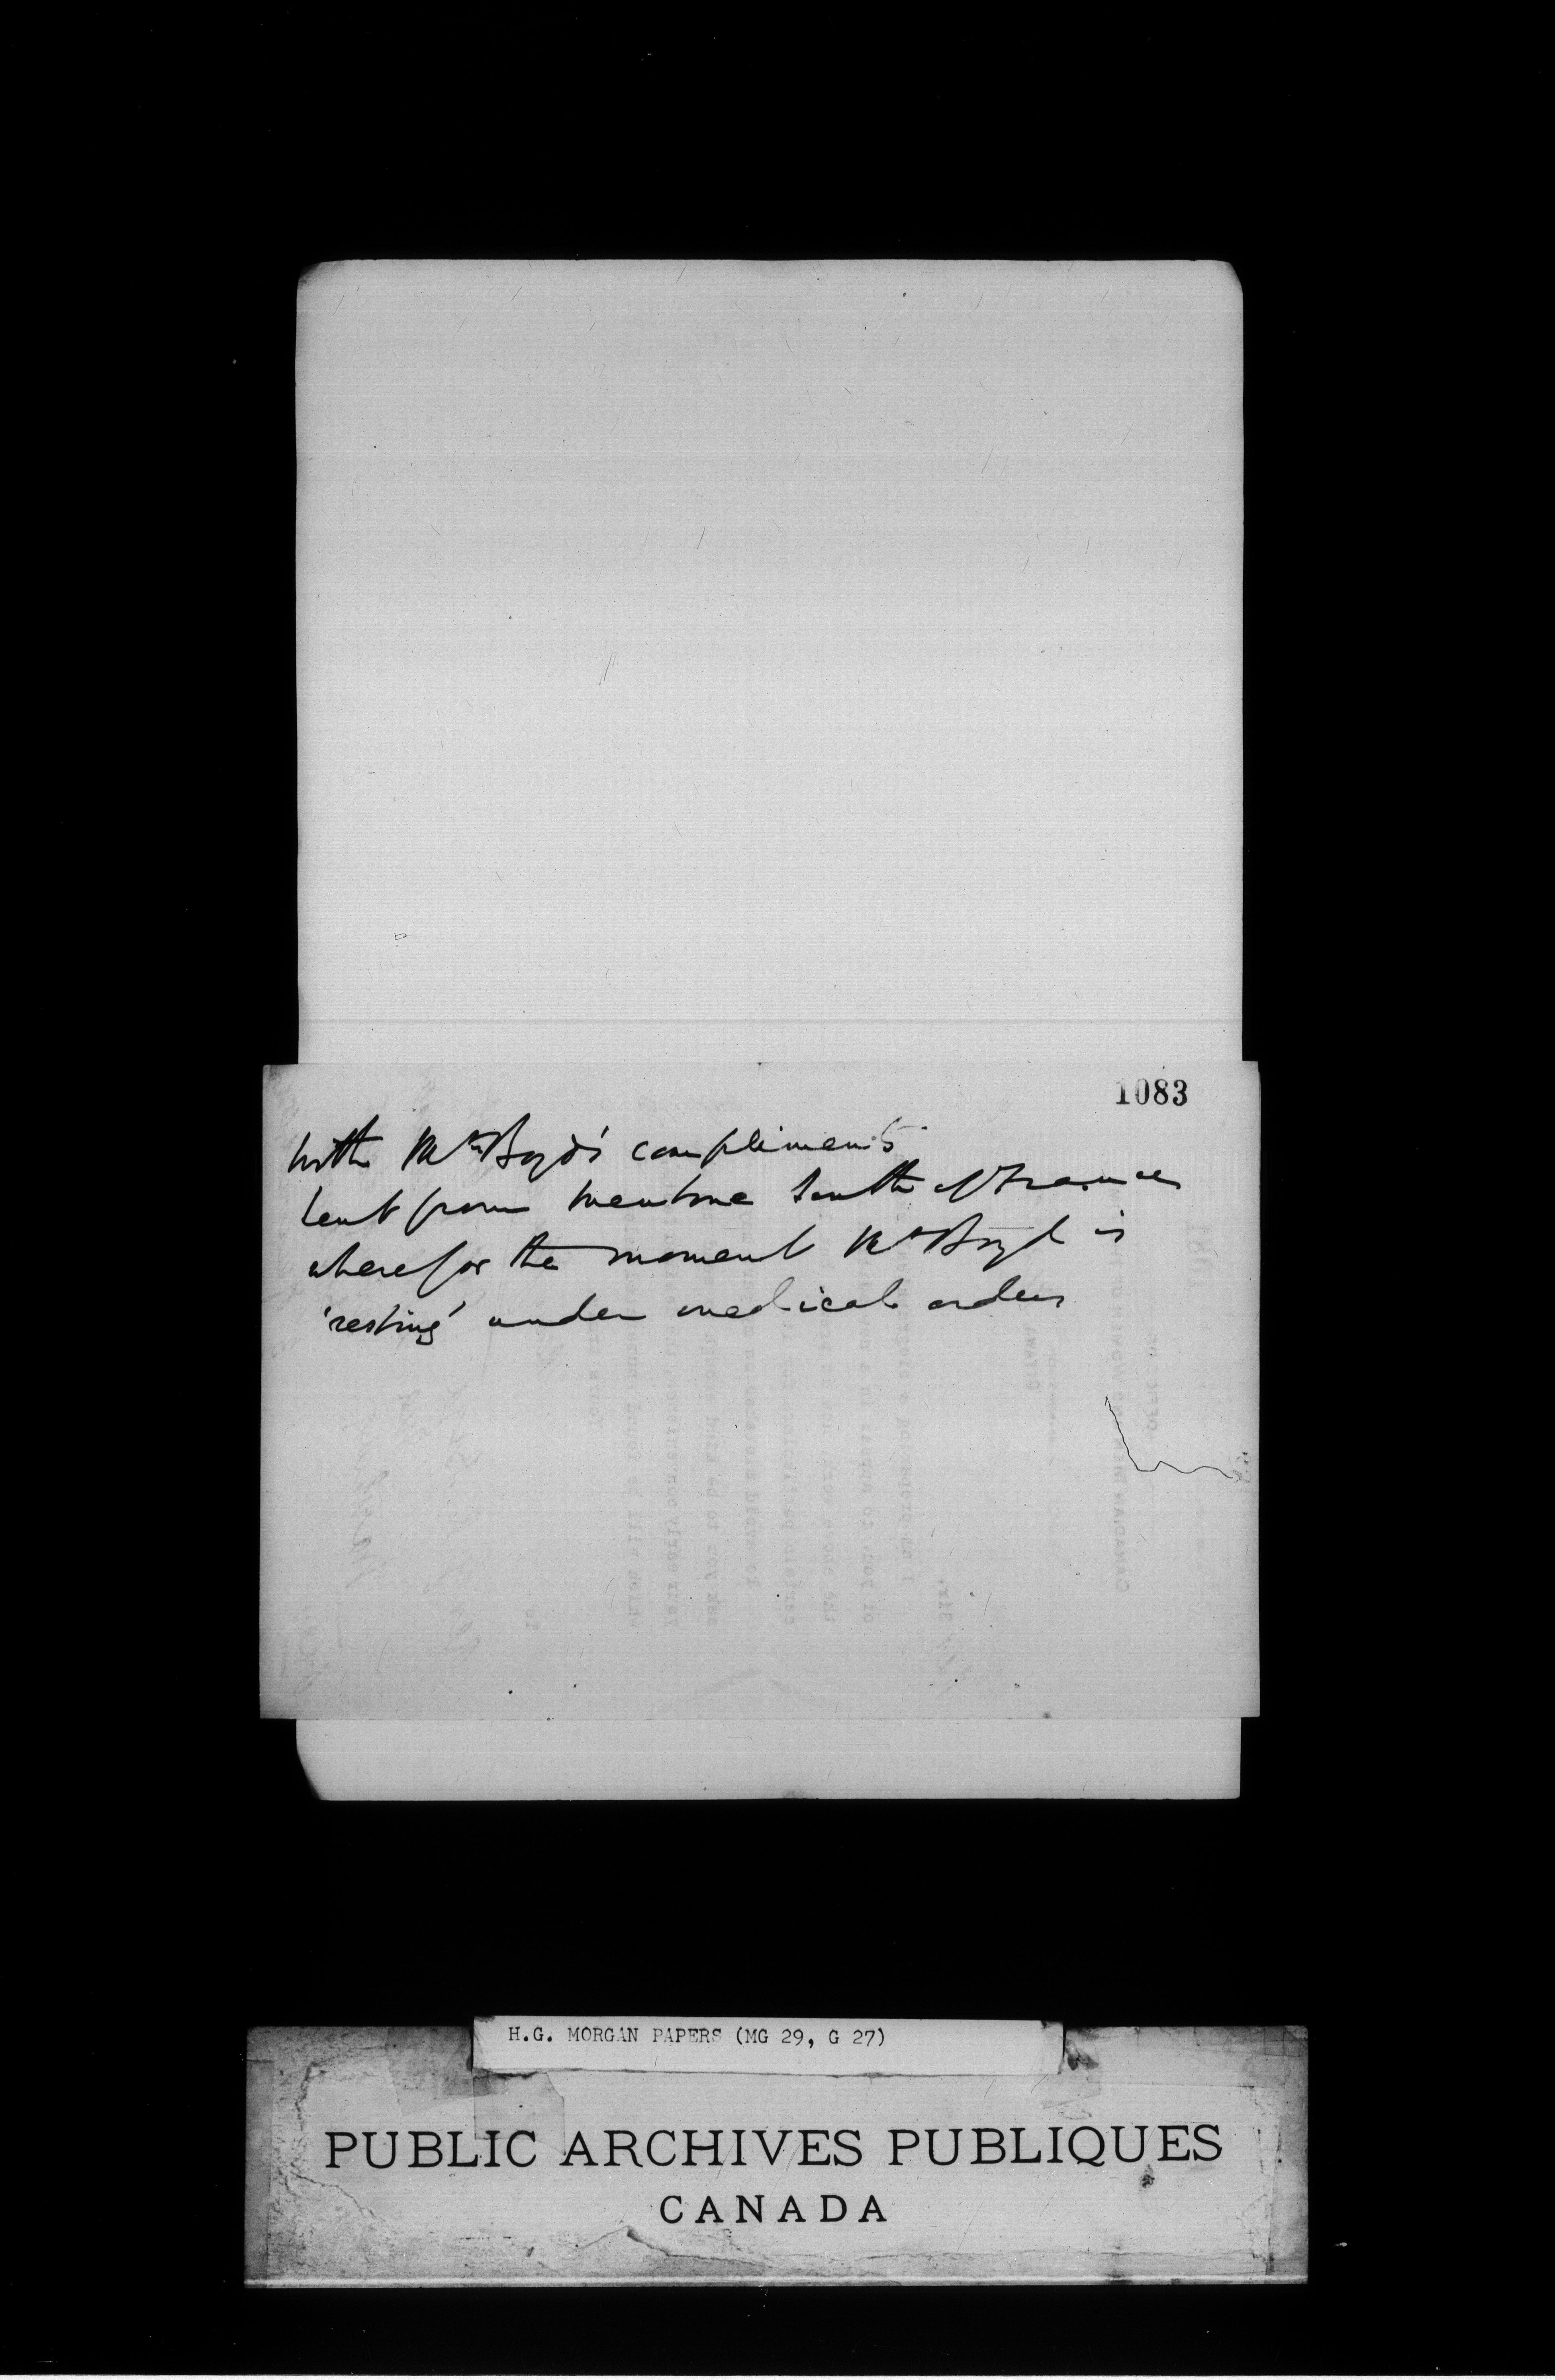 1083
With Mr Boyd's compliments
Sent from Mentone South of France
where for the moment Mr Boyd is
'resting' under medical orders
H.G. MORGAN PAPERS (MG 29, G 27)
PUBLIC ARCHIVES PUBLIQUES
CANADA